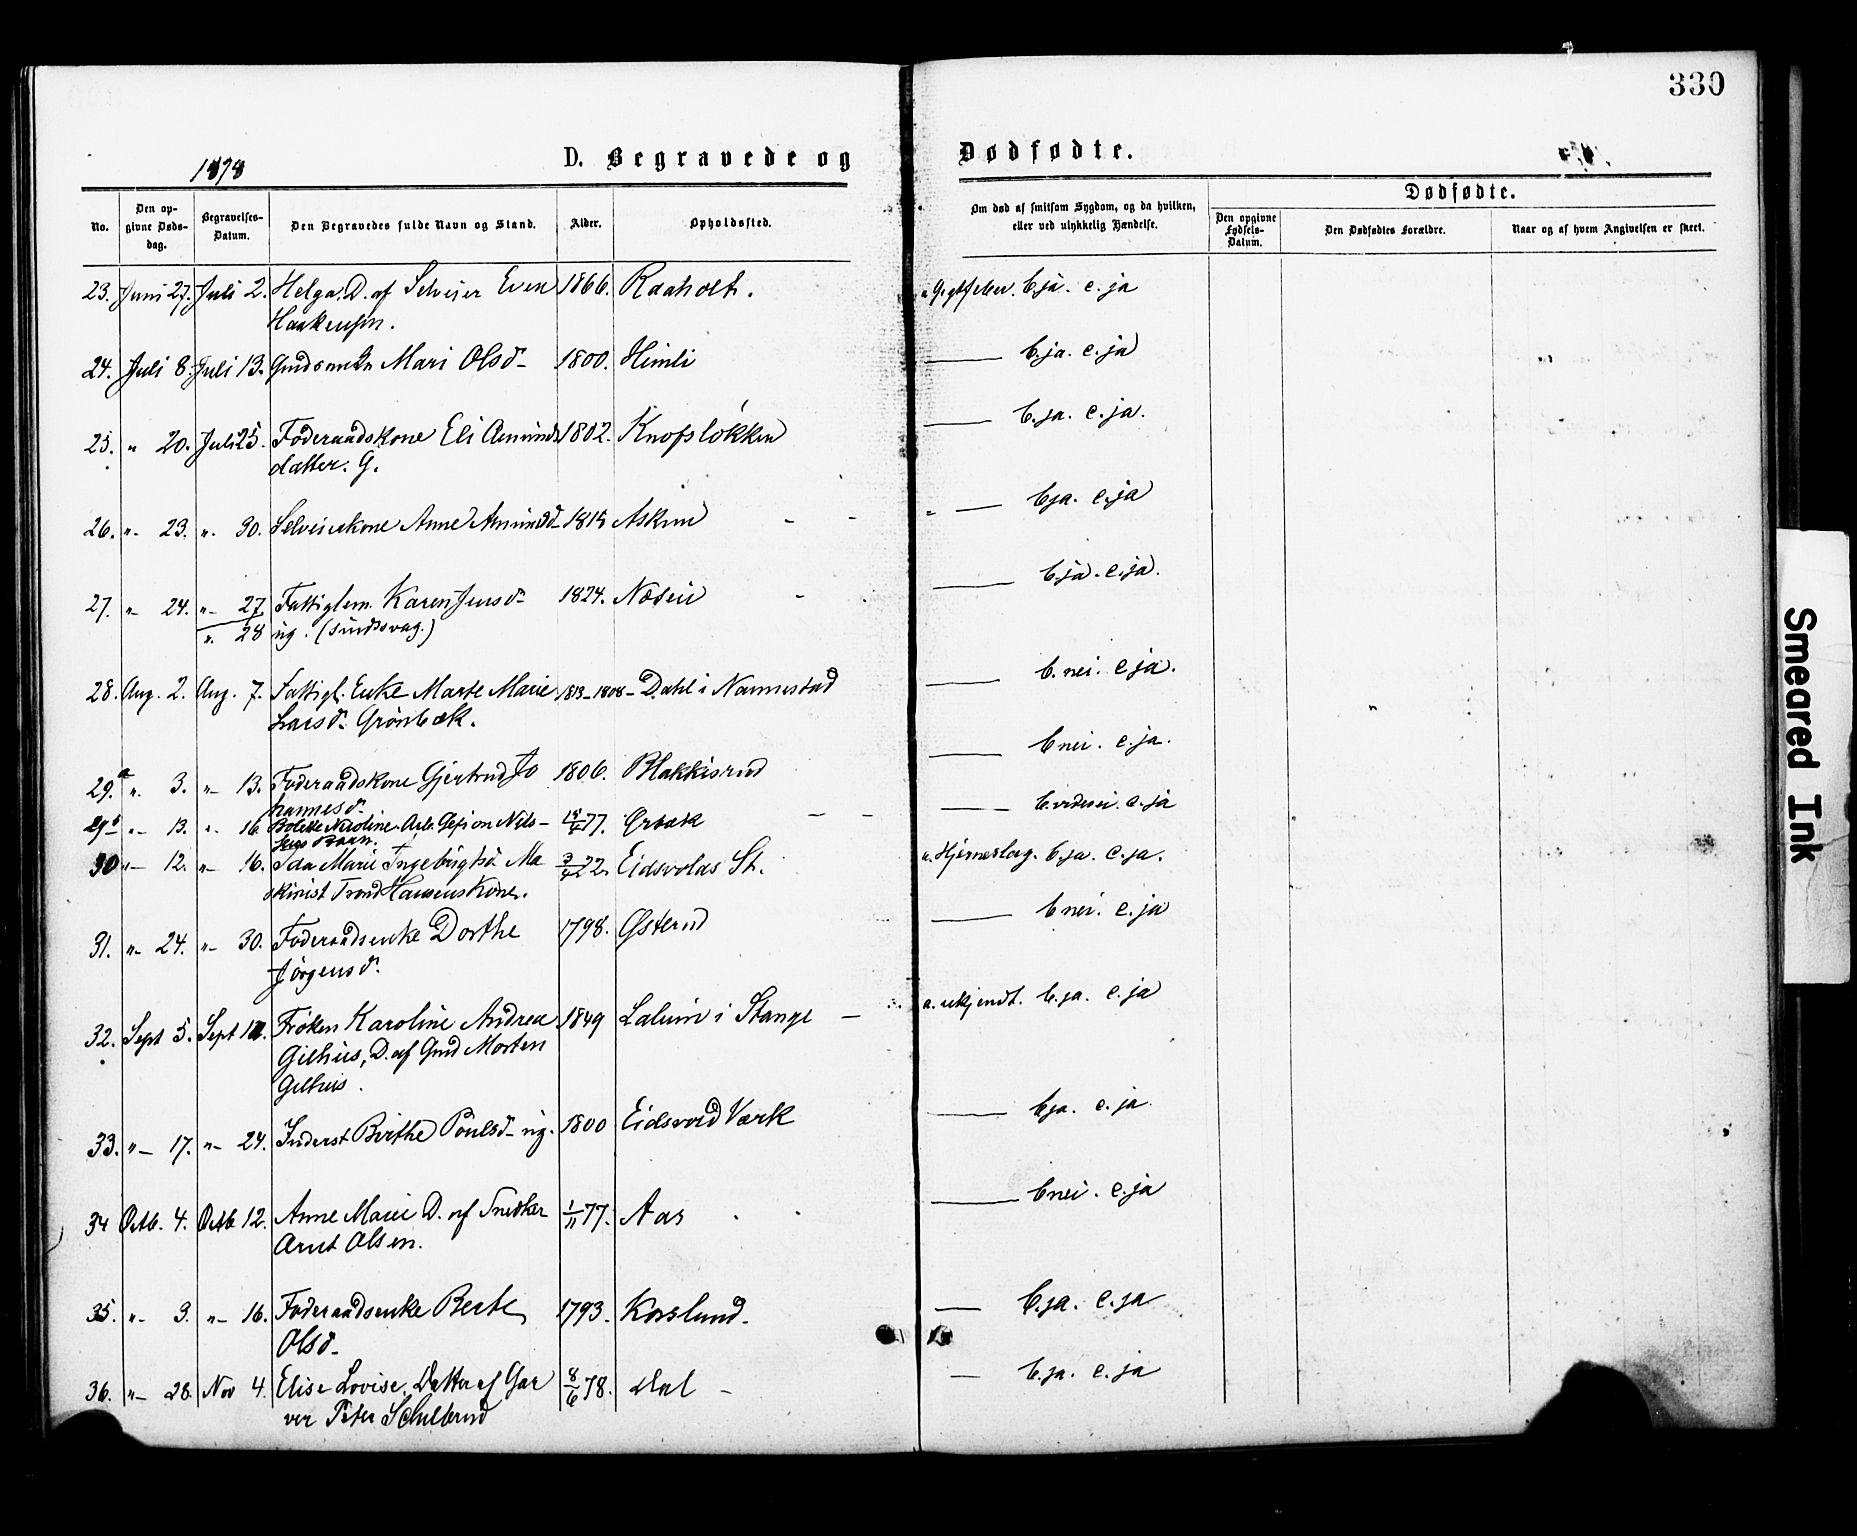 330
1878
D. Begravede og Dødfødte.
Dødfødte.
No.
Den opgivne Dødsdag.
Begravelses-Datum.
Den Begravedes fulde Navn og Stand.
Alder.
Opholdssted.
Om død af smitsom Sygdom, og da hvilken, eller ved ulykkelig Hændelse.
Den opgivne Fødsels-Datum.
Den Dødfødtes Forældre.
Naar og af hvem Angivelsen er skeet.
23. Juni 27. Juli 2. Helga, D. af Selveier Even 1866. Raaholt. a. Gigtfeber. b. ja. c. ja
Haakensen.
24. Juli 8. Juli 13. Mari Olsd. 1800. Himli — b. ja. c. ja
25. " 20. Juli 25. Føderaadskone Eli Amunds 1802. Knopsløkken — b. ja. c. ja.
datter. G.
26. " 23. " 30. Selveierkone Anne Amundsd. 1815 Askim — b. ja. c. ja
27. " 24. " 27 Fattiglem. Karen Jensd. 1824. Næsein — b. ja. c. ja.
" 28 ug. (sindssvag.)
28. Aug. 2. Aug. 7. Fattigl. Enke Marte Marie 1813-1808 - Dahl i Nannestad — b. nei. c. ja.
Larsd. Grønbæk.
29.a " 3. " 13. Føderaadskone Gjertrud Jo 1806. Blakkisrud — b. nei. c. ja.
hannesd.
29b " 13. " 16. Nils- 77. Ørbæk — c. ja
sens Barn.
30 " 12. " 16. Ida Marie Ma 22. Eidsvolds St. a. Hjerneslag. b. ja. c. ja.
skinist Trond Hansens Kone.
31. " 24. " 30. Føderaadsenke Dorthe 1798. Østerud — b. nei. c. ja
Jørgensd.
32. Sept 5. Sept Frøken Karoline Andrea 1849 Lalum i Stange — a. ukjendt. b. ja. c. ja
Gilhus, D. af Gmd Morten
Gilhus.
33. " 17. " 24. Inderst Birthe Poulsd. ug. 1800 Eidsvold Værk — b. ja. c. ja.
34 Octb. 4. Octb 12. Anne Marie D. af Snedker 1/11 77. Aas — b. nei. c. ja
Arnt Olsen.
35. " 9. " 16. Føderaadsenke Berte 1793. Korslund. — b. ja. c. ja
Olsd.
36. " 28. Nov 4. Elise Lovise, Datter af Gar 8/6 78. Dal — b. ja. c. ja
ver Peter Schulterud
Smeared Ink